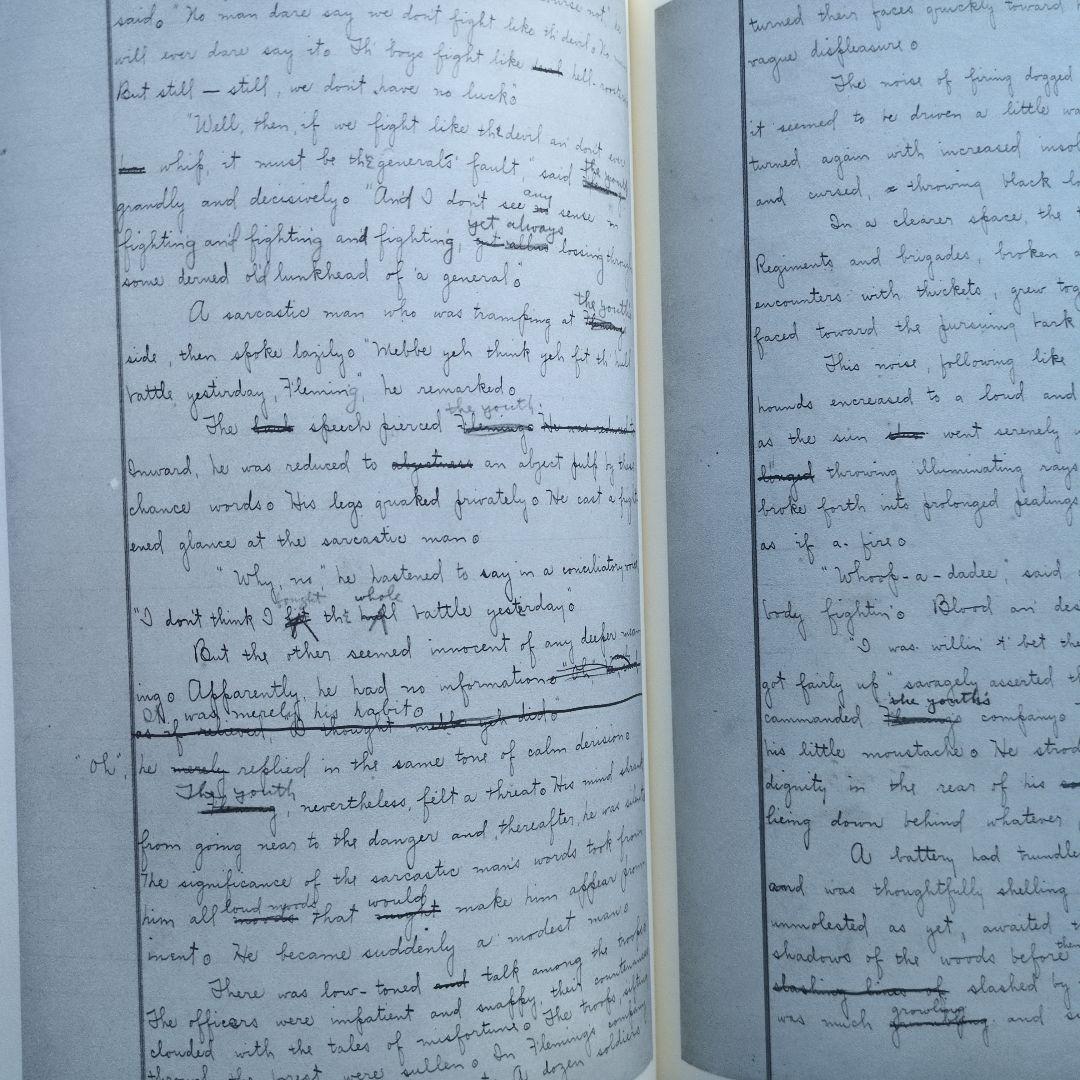 said. "No man dare say we don't fight like th' devil. No
will ever dare say it. Th' boys fight like hell-roosters
But still — still, we don't have no luck."
"Well, then, if we fight like the devil an' don't ever
whip, it must be the general's fault," said the youth
grandly and decisively. "And I don't see any sense in
fighting and fighting and fighting, yet always lossing through
some derned old lunkhead of a general."
A sarcastic man who was tramping at the youth's
side, then spoke lazily. "Mebbe yeh think yeh fit th' hull
battle yesterday, Fleming," he remarked.
The speech pierced the youth.
Inward, he was reduced to an abject pulp by these
chance words. His legs quaked privately. He cast a fright
ened glance at the sarcastic man.
"Why, no," he hastened to say in a conciliatory voice
"I don't think I fought the whole battle yesterday."
But the other seemed innocent of any deeper mean
ing. Apparently, he had no information.
It was merely his habit.
"Oh", he replied in the same tone of calm derision.
The youth, nevertheless, felt a threat. His mind shrank
from going near to the danger and, thereafter, he was silent
The significance of the sarcastic man's words took from
him all loud moods that would make him appear prom
inent. He became suddenly a modest man.
There was low-toned talk among the troops
The officers were impatient and snappy, their countenances
clouded with the tales of misfortune. The troops, sifting
through the forest were sullen. In Fleming's company
A dozen soldiers
turned their faces quickly toward
vague displeasure.
The noise of firing dogged
it seemed to be driven a little
turned again with increased
and cursed, throwing black
In a clearer space, the
Regiments and brigades, broken
encounters with thickets, grew
faced toward the pursuing bark
This noise, following like
hounds encreased to a loud and
as the sun went serenely
throwing illuminating rays
broke forth into prolonged pealings
as if a-fire.
"Whoop-a-dadee," said
body fightin'. Blood an' des
"I was willin' t' bet the
got fairly up" savagely asserted
commanded the youth's company.
his little moustache. He strode
dignity in the rear of his
lieing down behind whatever
A battery had trundled
and was thoughtfully shelling
unmolested as yet, awaited
shadows of the woods before them
slashed by
was much growling and